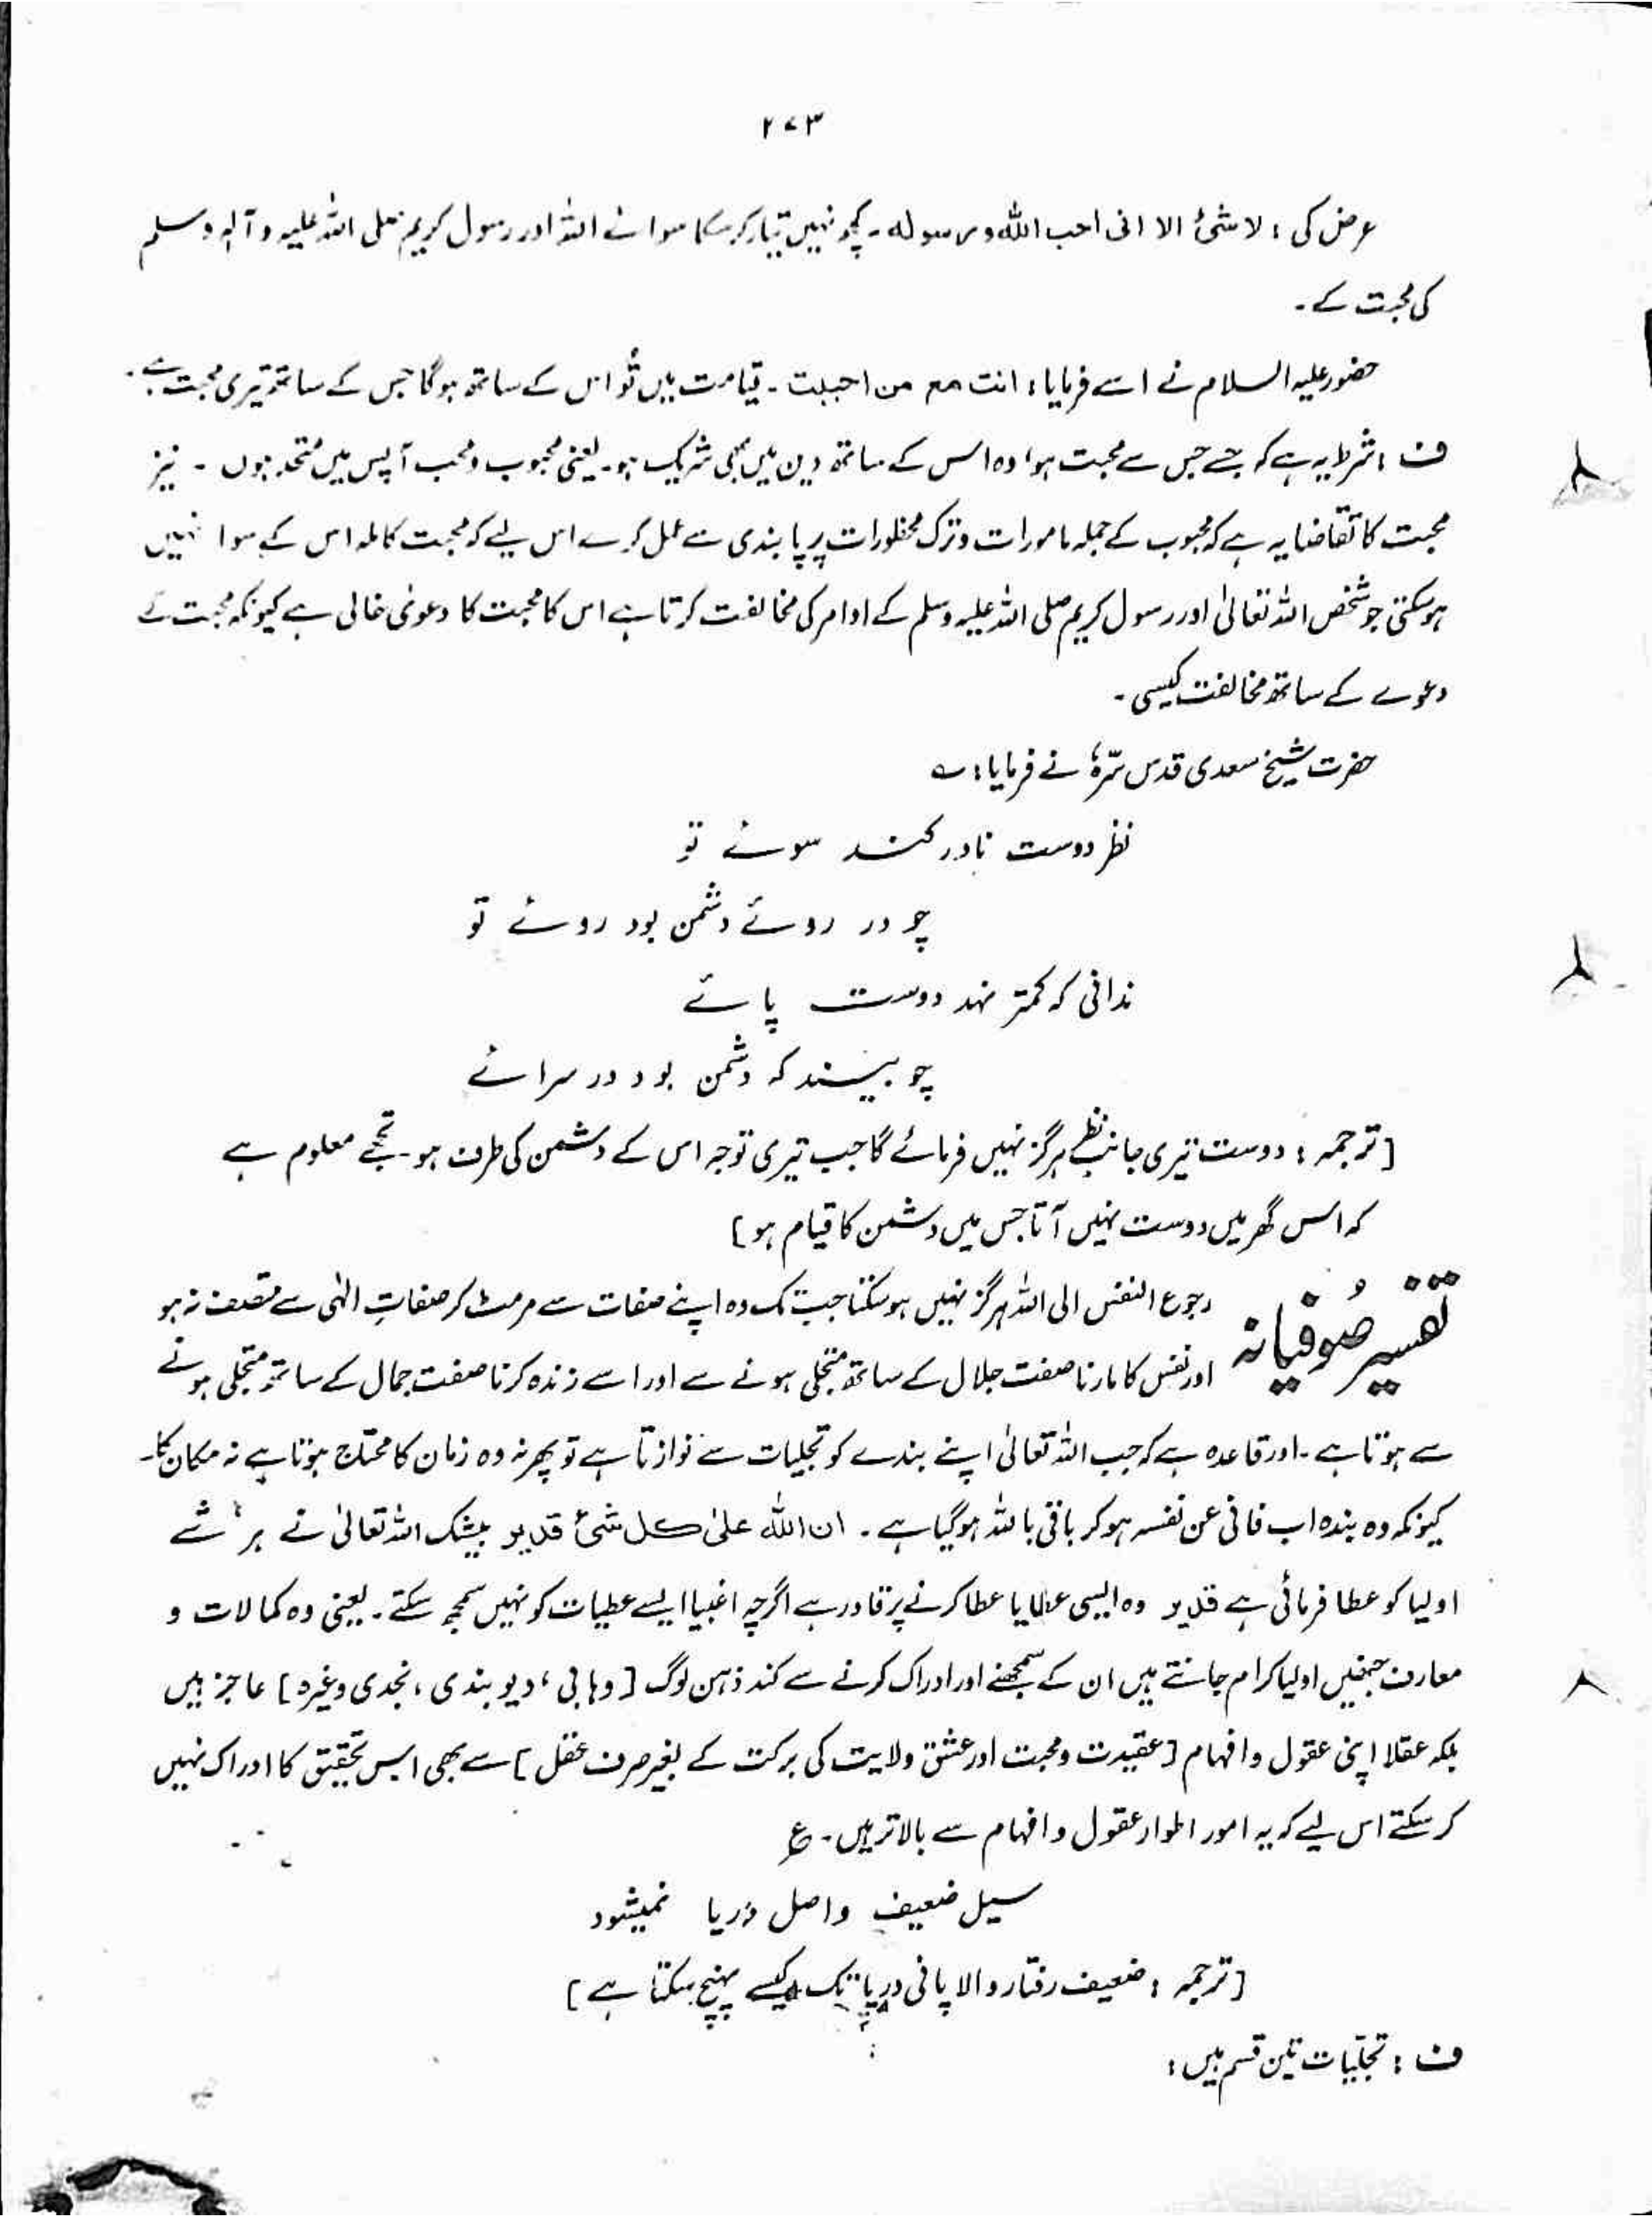 ۲۷۳
عرض کی : لا شئ الا انی احب اللہ و رسولہ ۔ کچھ نہیں تیار کر سکا سوائے اللہ اور رسول کریم صلی اللہ علیہ و آلہ وسلم
کی محبت کے ۔
حضور علیہ السلام نے اسے فرمایا : انت مع من احببت ۔ قیامت میں تُو اس کے ساتھ ہوگا جس کے ساتھ تیری محبت ہے ۔
ف : شرط یہ ہے کہ جسے جس سے محبت ہو ، وہ اس کے ساتھ دین میں بھی شریک ہو ۔ یعنی محبوب و محب آپس میں متحد ہوں ۔ نیز
محبت کا تقاضا یہ ہے کہ محبوب کے جملہ مامورات و ترک محظورات پر پابندی سے عمل کرے اس لیے کہ محبت کاملہ اس کے سوا نہیں
ہو سکتی جو شخص اللہ تعالیٰ اور رسول کریم صلی اللہ علیہ وسلم کے اوامر کی مخالفت کرتا ہے اس کا محبت کا دعویٰ خالی ہے کیونکہ محبت کے
دعوے کے ساتھ مخالفت کیسی ۔
حضرت شیخ سعدی قدس سرّہٗ نے فرمایا : ؎
نظر دوست نادر کند سوئے تو
چو در روئے دشمن بود روئے تو
ندانی کہ کمتر نہد دوست پائے
چو بیند کہ دشمن بود در سرائے
[ ترجمہ : دوست تیری جانب نظر ہرگز نہیں فرمائے گا جب تیری توجہ اس کے دشمن کی طرف ہو ۔ تجھے معلوم ہے
کہ اس گھر میں دوست نہیں آتا جس میں دشمن کا قیام ہو ]
تفسیر صُوفیانہ رجوع النفس الی اللہ ہرگز نہیں ہو سکتا جب تک وہ اپنے صفات سے مرمٹ کر صفاتِ الٰہی سے متصف نہ ہو
اور نفس کا مارنا صفت جلال کے ساتھ متجلی ہونے سے اور اسے زندہ کرنا صفت جمال کے ساتھ متجلی ہونے
سے ہوتا ہے ۔ اور قاعدہ ہے کہ جب اللہ تعالیٰ اپنے بندے کو تجلیات سے نوازتا ہے تو پھر نہ وہ زمان کا محتاج ہوتا ہے نہ مکان کا ۔
کیونکہ وہ بندہ اب فانی عن نفسہ ہو کر باقی باللہ ہوگیا ہے ۔ ان اللہ علیٰ کل شئ قدیر بیشک اللہ تعالیٰ نے ہر شے
اولیا کو عطا فرمائی ہے قدیر وہ ایسی عطایا عطا کرنے پر قادر ہے اگرچہ اغبیا ایسے عطیات کو نہیں سمجھ سکتے ۔ یعنی وہ کمالات و
معارف جنھیں اولیا کرام جانتے ہیں ان کے سمجھنے اور ادراک کرنے سے کند ذہن لوگ [ وہابی ، دیوبندی ، نجدی وغیرہ ] عاجز ہیں
بلکہ عقلا اپنی عقول و افہام [ عقیدت و محبت اور عشق ولایت کی برکت کے بغیر صرف عقل ] سے بھی اس تحقیق کا ادراک نہیں
کر سکتے اس لیے کہ یہ امور اطوار عقول و افہام سے بالاتر ہیں ۔ ع
سیل ضعیف واصل دریا نمیشود
[ ترجمہ : ضعیف رفتار والا پانی دریا تک کیسے پہنچ سکتا ہے ]
ف : تجلیات تین قسم ہیں :